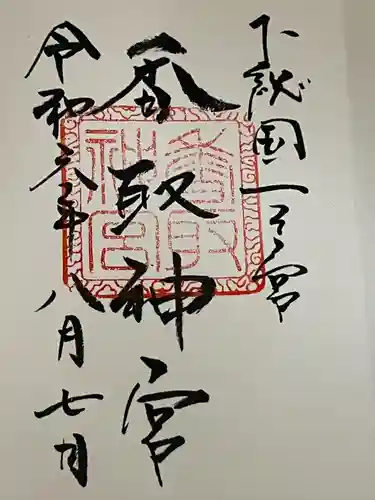 下総国一之宮
香取神宮
令和六年八月七日
香取神宮